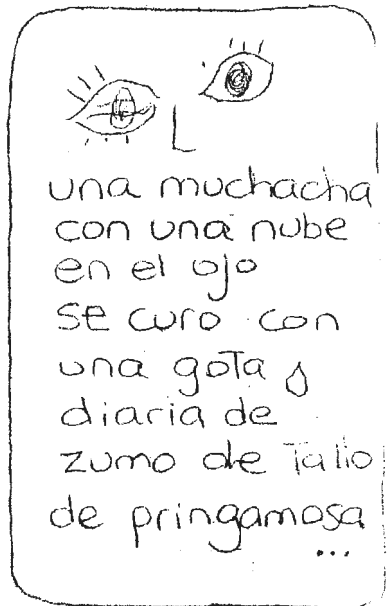 una muchacha
con una nube
en el ojo
se curo con
una gota
diaria de
zumo de Tallo
de pringamosa
...